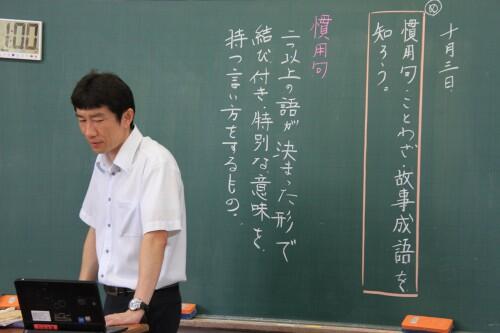 十月三日
め
慣用句・ことわざ・故事成語を
知ろう。
慣用句
二つ以上の語が決まった形で
結び付き、特別な意味を
持つ言い方をするもの。
1:00